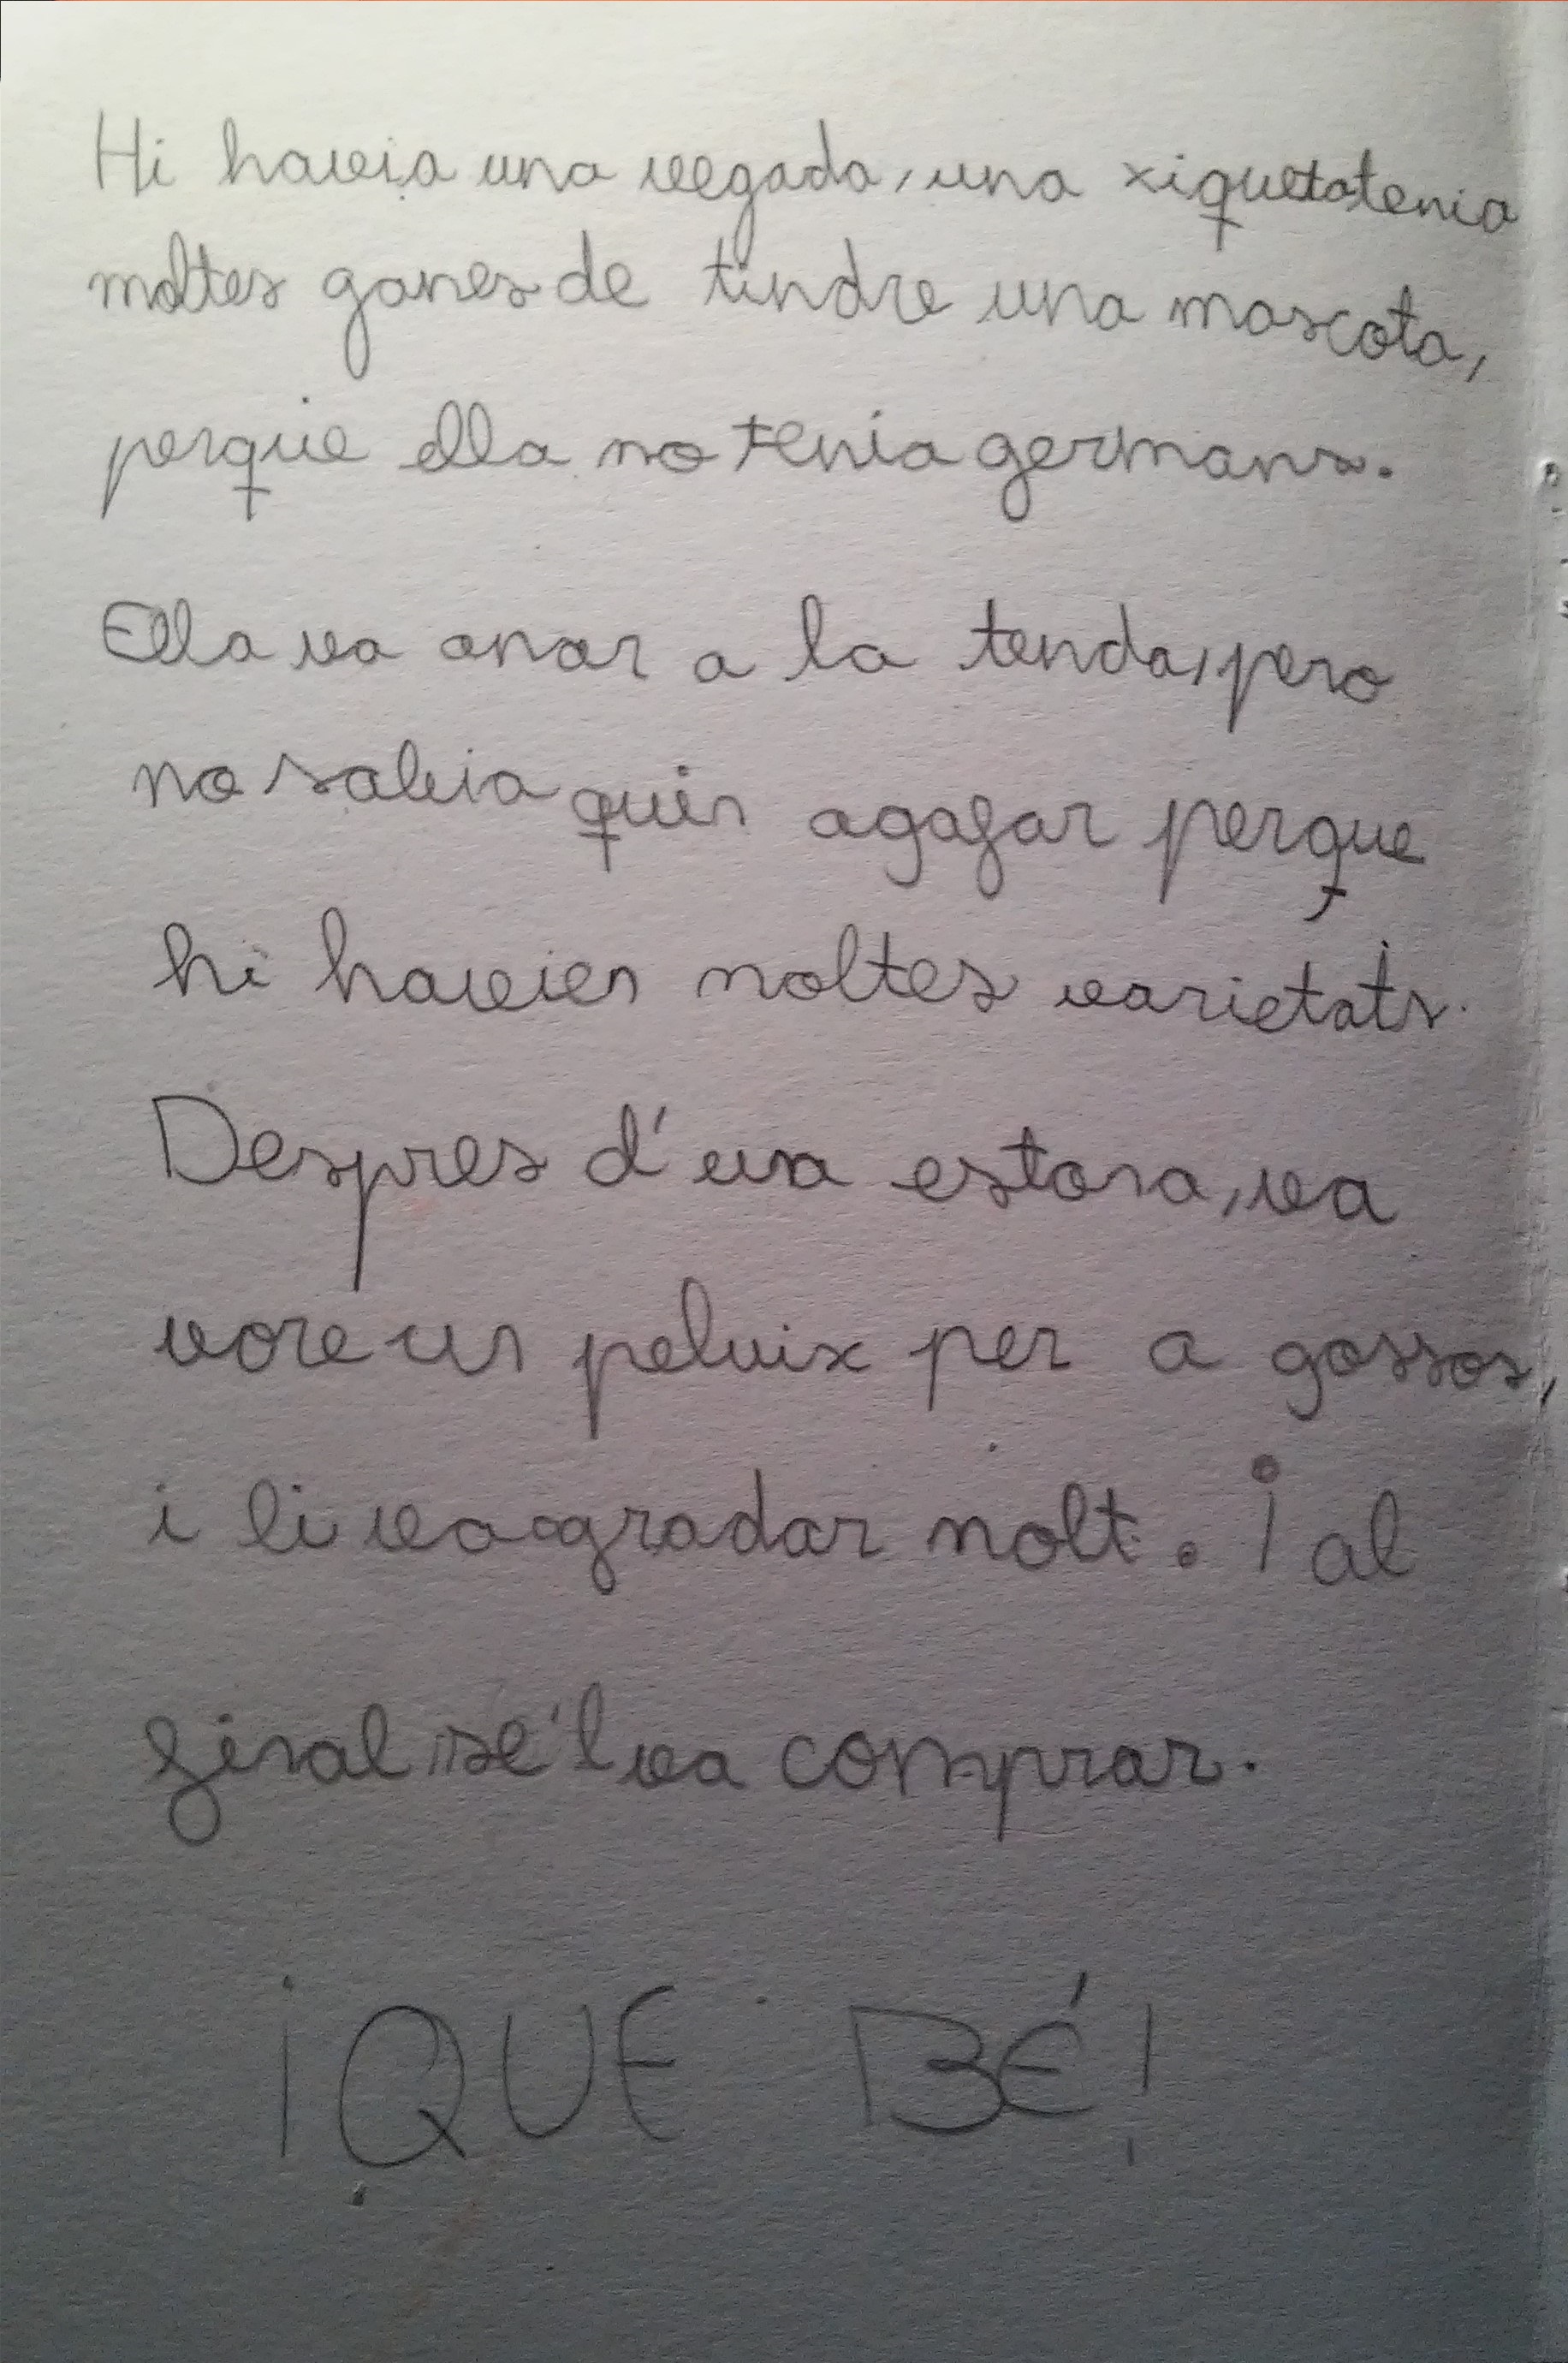 Hi havia una vegada, una xiqueta tenia
moltes ganes de tindre una mascota,
perque ella no tenia germans.
Ella va anar a la tenda, pero
no sabia quin agafar perque
hi havien moltes varietats.
Despres d'una estona, va
vore un peluix per a gossos,
i li va agradar molt. I al
final se'l va comprar.
¡QUE BÉ!